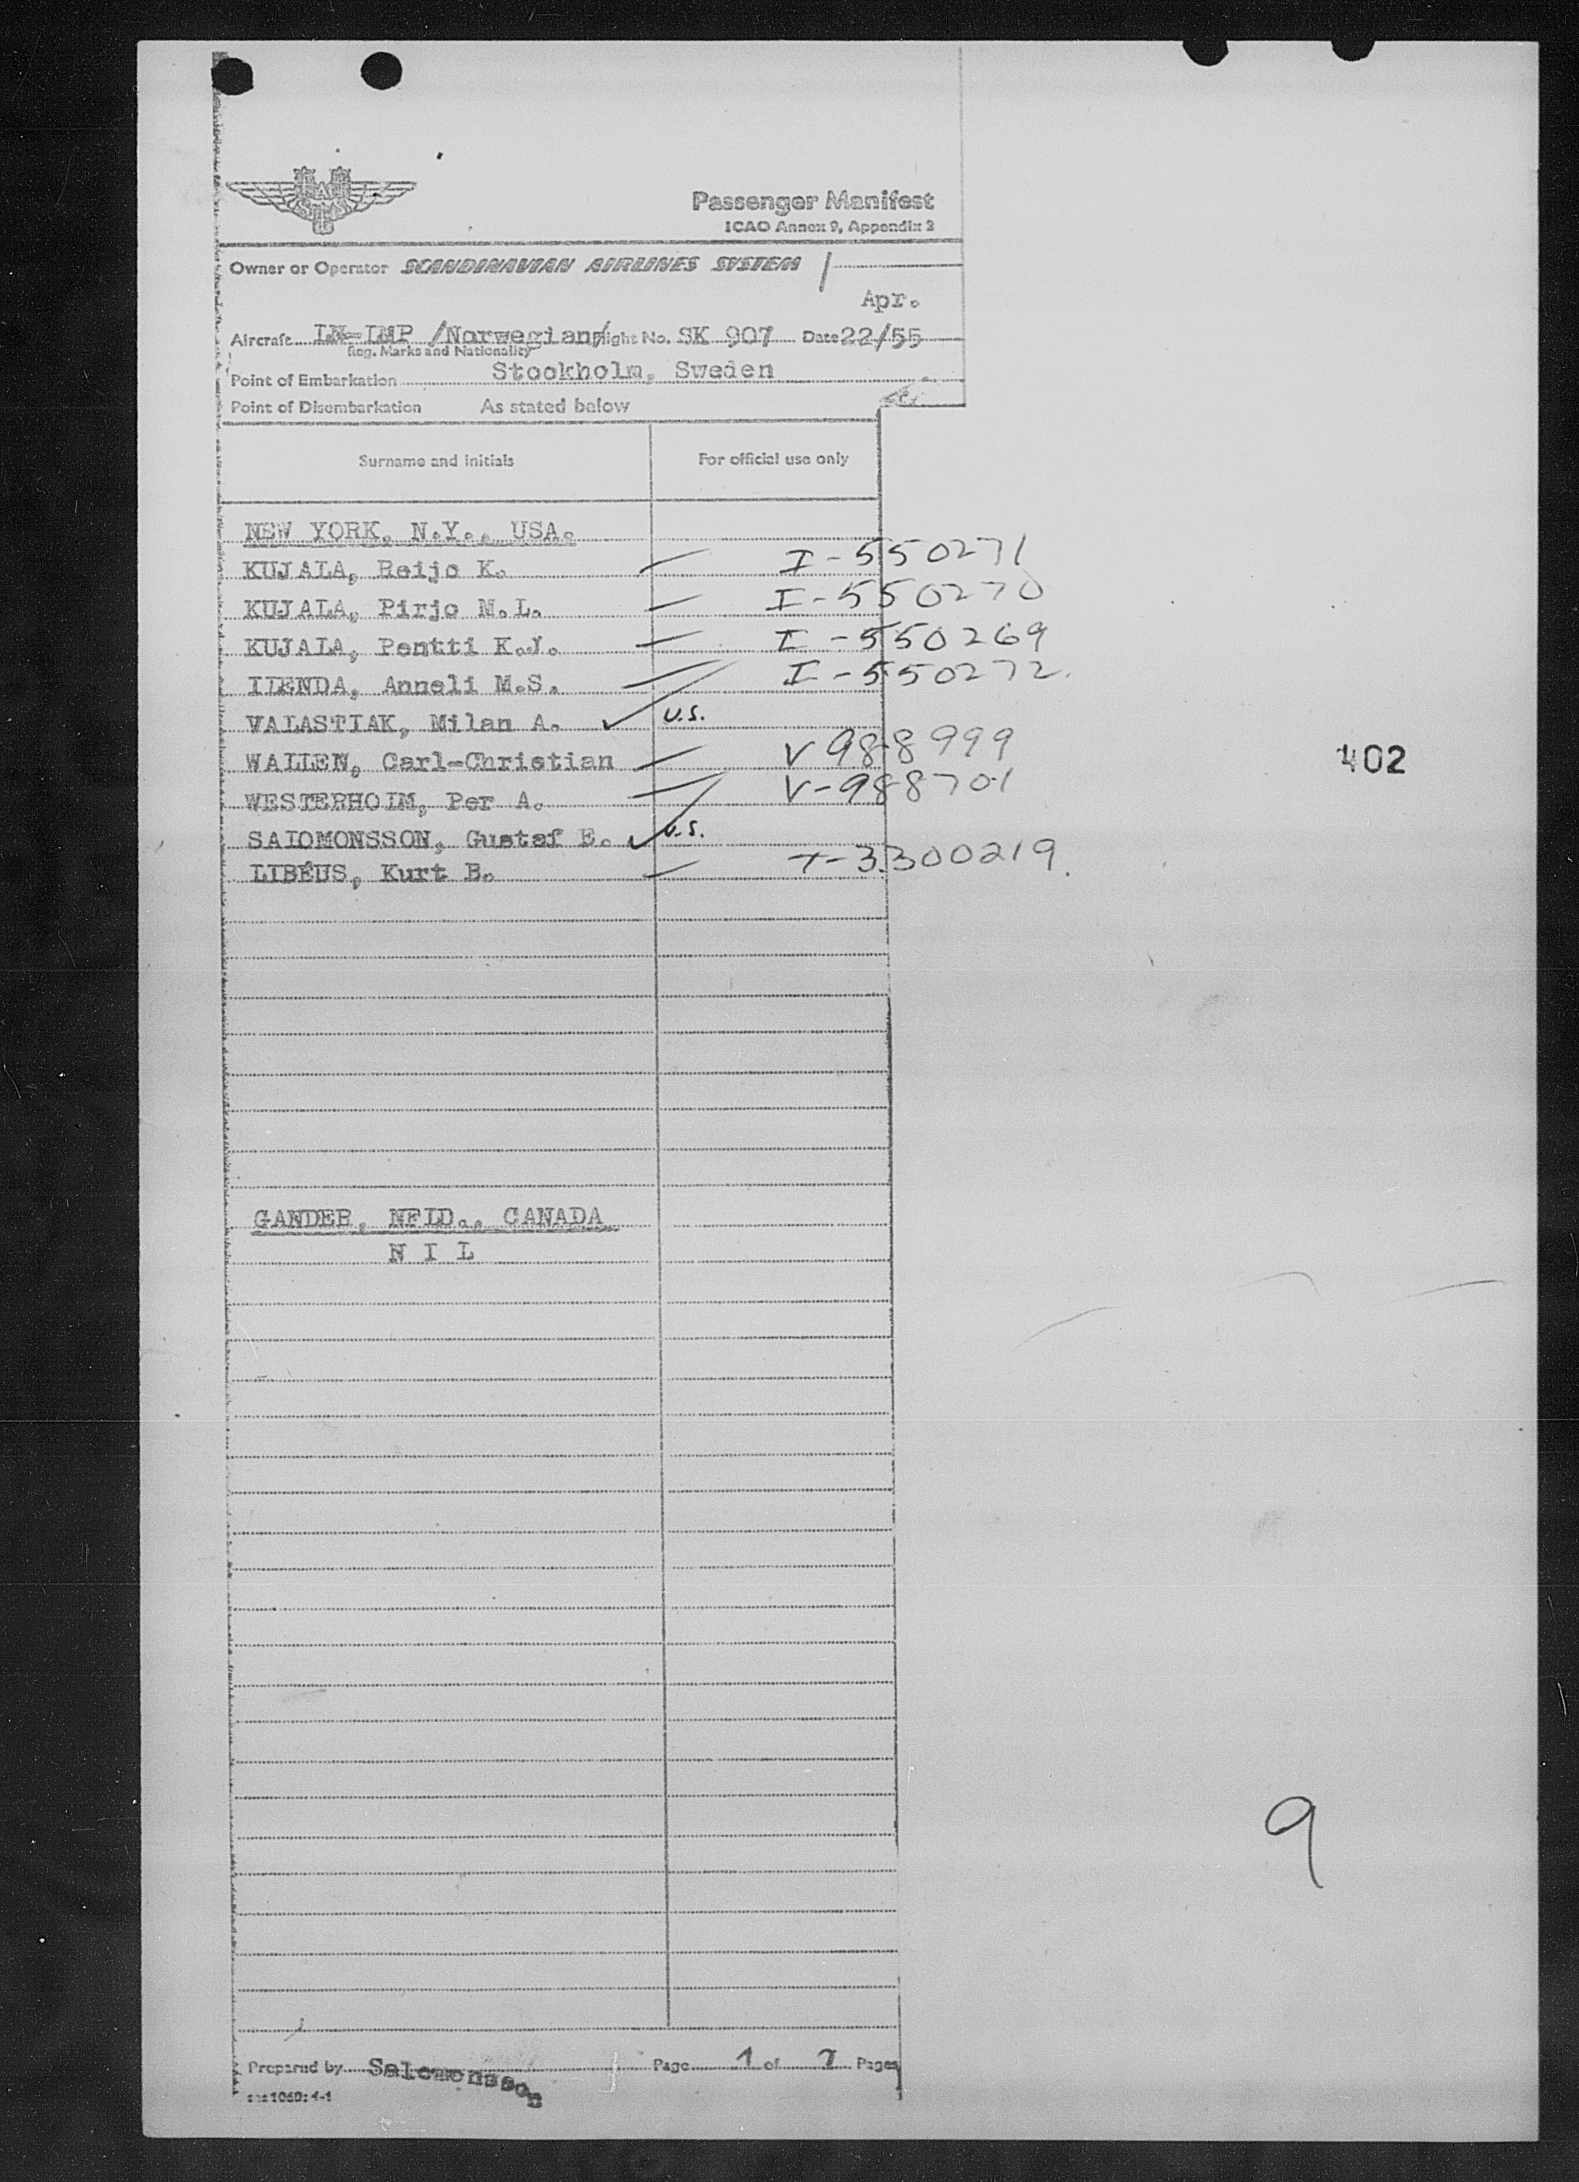 Passenger Manifest
ICAO Annex 9, Appendix 2
Owner or Operator SCANDINAVIAN AIRLINES SYSTEM
Apr.
Aircraft LN-LMP /Norwegian/ Flight No. SK 907 Date 22/55
Reg. Marks and Nationality
Point of Embarkation Stockholm, Sweden
Point of Disembarkation As stated below
Surname and initials For official use only
NEW YORK, N.Y., USA.
KUJALA, Reijo K. I-550271
KUJALA, Pirjo M.L. I-550270
KUJALA, Pentti K.J. I-550269
Anneli M.S. I-550272.
VALASTIAK, Milan A. U.S.
WALLEN, Carl-Christian V 988999
402
WESTERHOLM, Per A. V-988701
SALOMONSSON, Gustaf E. U.S.
LIBÉUS, Kurt B. T-3300219.
GANDER, NFLD., CANADA
N I L
9
Prepared by Salomonsson Page 1 of Pages
1060: 4-1